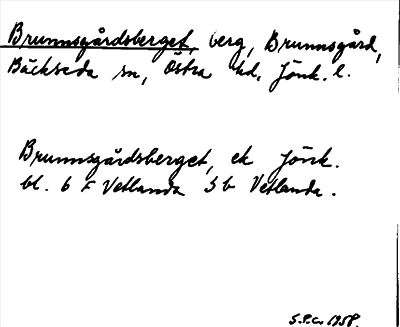 Brunnsgårdsberget, berg, Brunnsgård,
Bäckseda sn, Östra hd, Jönk. l.
Brunnsgårdsberget, ek Jönk.
bl. 6 F Vetlanda 5 b Vetlanda.
S.P.G. 1958.